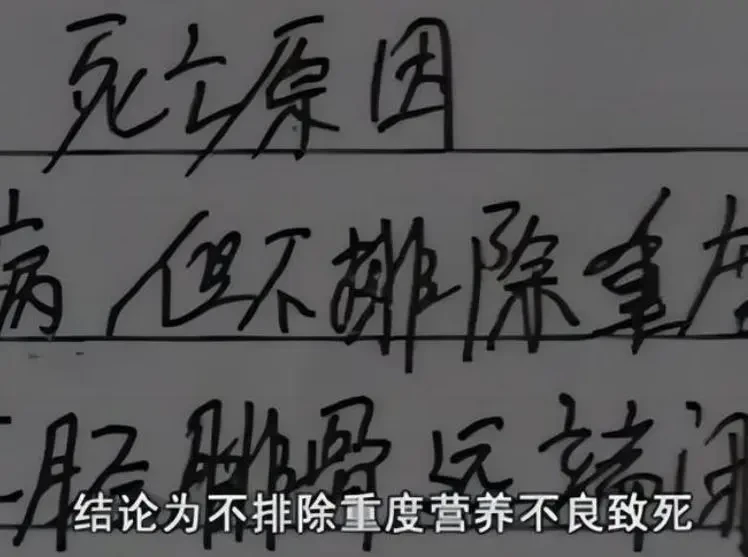 死亡原因
病，但不排除重度
胫腓骨远端闭
结论为不排除重度营养不良致死